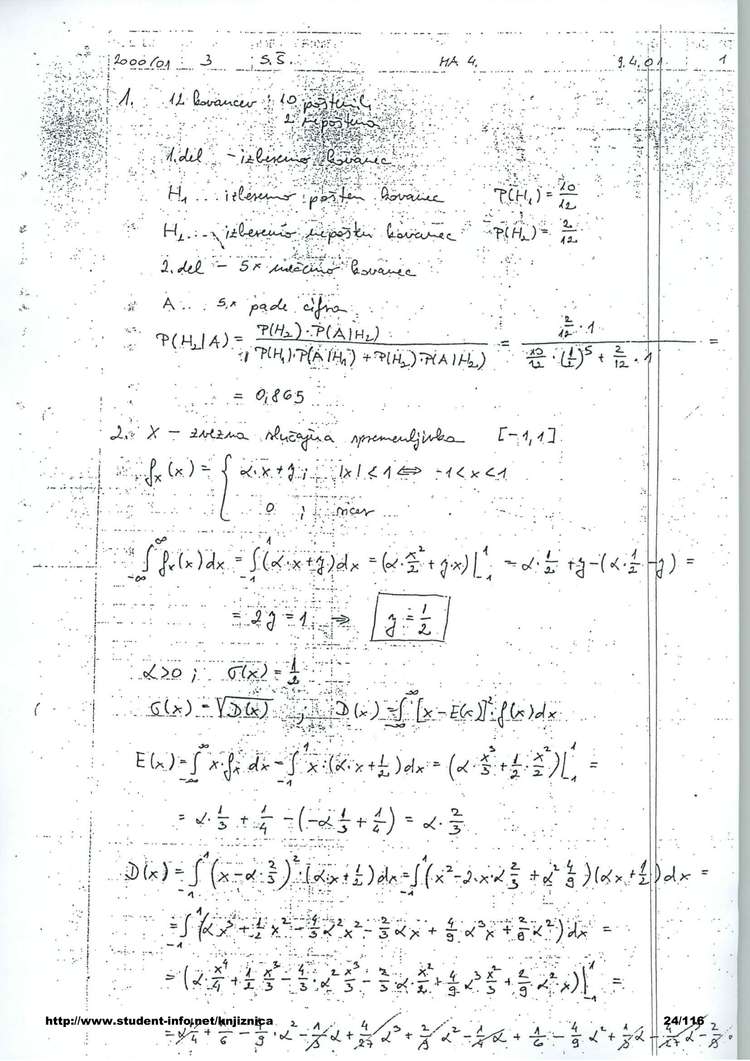 2000/01 3 S.Š. MA 4. 9.4.01 1
1. 12 kovancev : 10 poštenih
2 nepoštena
1. del - izberemo kovanec
H₁ ... izberemo pošten kovanec P(H₁) = 10/12
H₂ ... izberemo nepošten kovanec P(H₂) = 2/12
2. del - 5x mečemo kovanec
A ... 5x pade cifra
P(H₂|A) = P(H₂)·P(A|H₂) / (P(H₁)·P(A|H₁) + P(H₂)·P(A|H₂)) = (2/12 · 1) / (10/12 · (1/2)⁵ + 2/12 · 1) =
= 0,865
2. X - zvezna slučajna spremenljivka [-1,1]
fₓ(x) = { α·x + y ; |x| ≤ 1 ⟺ -1 < x < 1
0 ; sicer
∫_{-∞}^{∞} fₓ(x)dx = ∫_{-1}^{1} (α·x+y)dx = (α·x²/2 + y·x)|_{-1}^{1} = α·1/2 + y - (α·1/2 - y) =
= 2y = 1 ⇒ y = 1/2
α>0 ; σ(x) = 1/2
σ(x) = √D(x) ; D(x) = ∫_{-∞}^{∞} [x-E(x)]²·f(x)dx
E(x) = ∫_{-∞}^{∞} x·fₓ dx = ∫_{-1}^{1} x·(α·x+1/2)dx = (α·x³/3 + 1/2·x²/2)|_{-1}^{1} =
= α·1/3 + 1/4 - (-α1/3 + 1/4) = α·2/3
D(x) = ∫_{-1}^{1} (x-α·2/3)²·(α·x+1/2)dx = ∫_{-1}^{1} (x²-2·x·α2/3 + α²4/9)(αx+1/2)dx =
= ∫_{-1}^{1} (αx³ + 1/2x² - 4/3α²x² - 2/3αx + 4/9α³x + 2/9α²)dx =
= (α·x⁴/4 + 1/2·x³/3 - 4/3·α²x³/3 - 2/3·α·x²/2 + 4/9α³x²/2 + 2/9α²·x)|_{-1}^{1} =
http://www.student-info.net/knjiznica 24/116